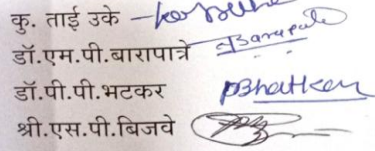 कु. ताई उके
डॉ.एम.पी.बारापात्रे Barapatre
डॉ.पी.पी.भटकर PBhatkar
श्री.एस.पी.बिजवे